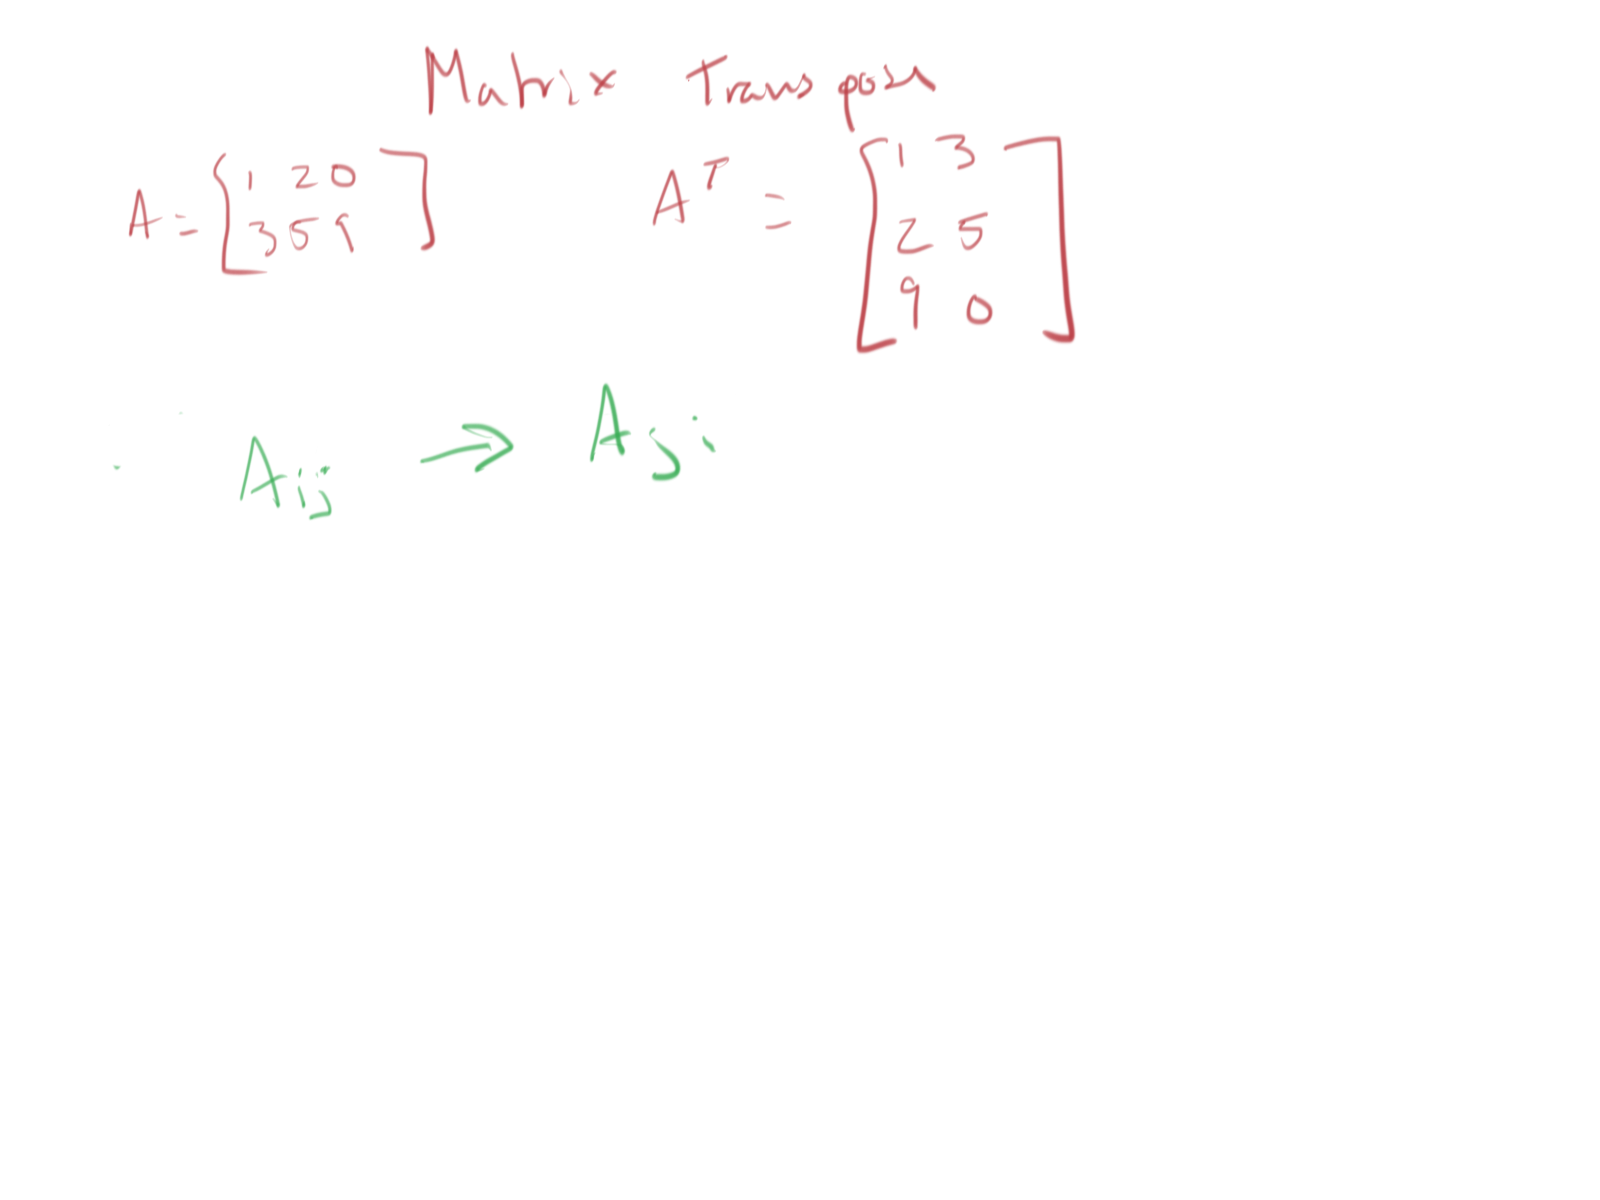 Matrix Transpose
A = [1 2 0
3 5 9]
A^T = [1 3
2 5
9 0]
A_ij → A_ji